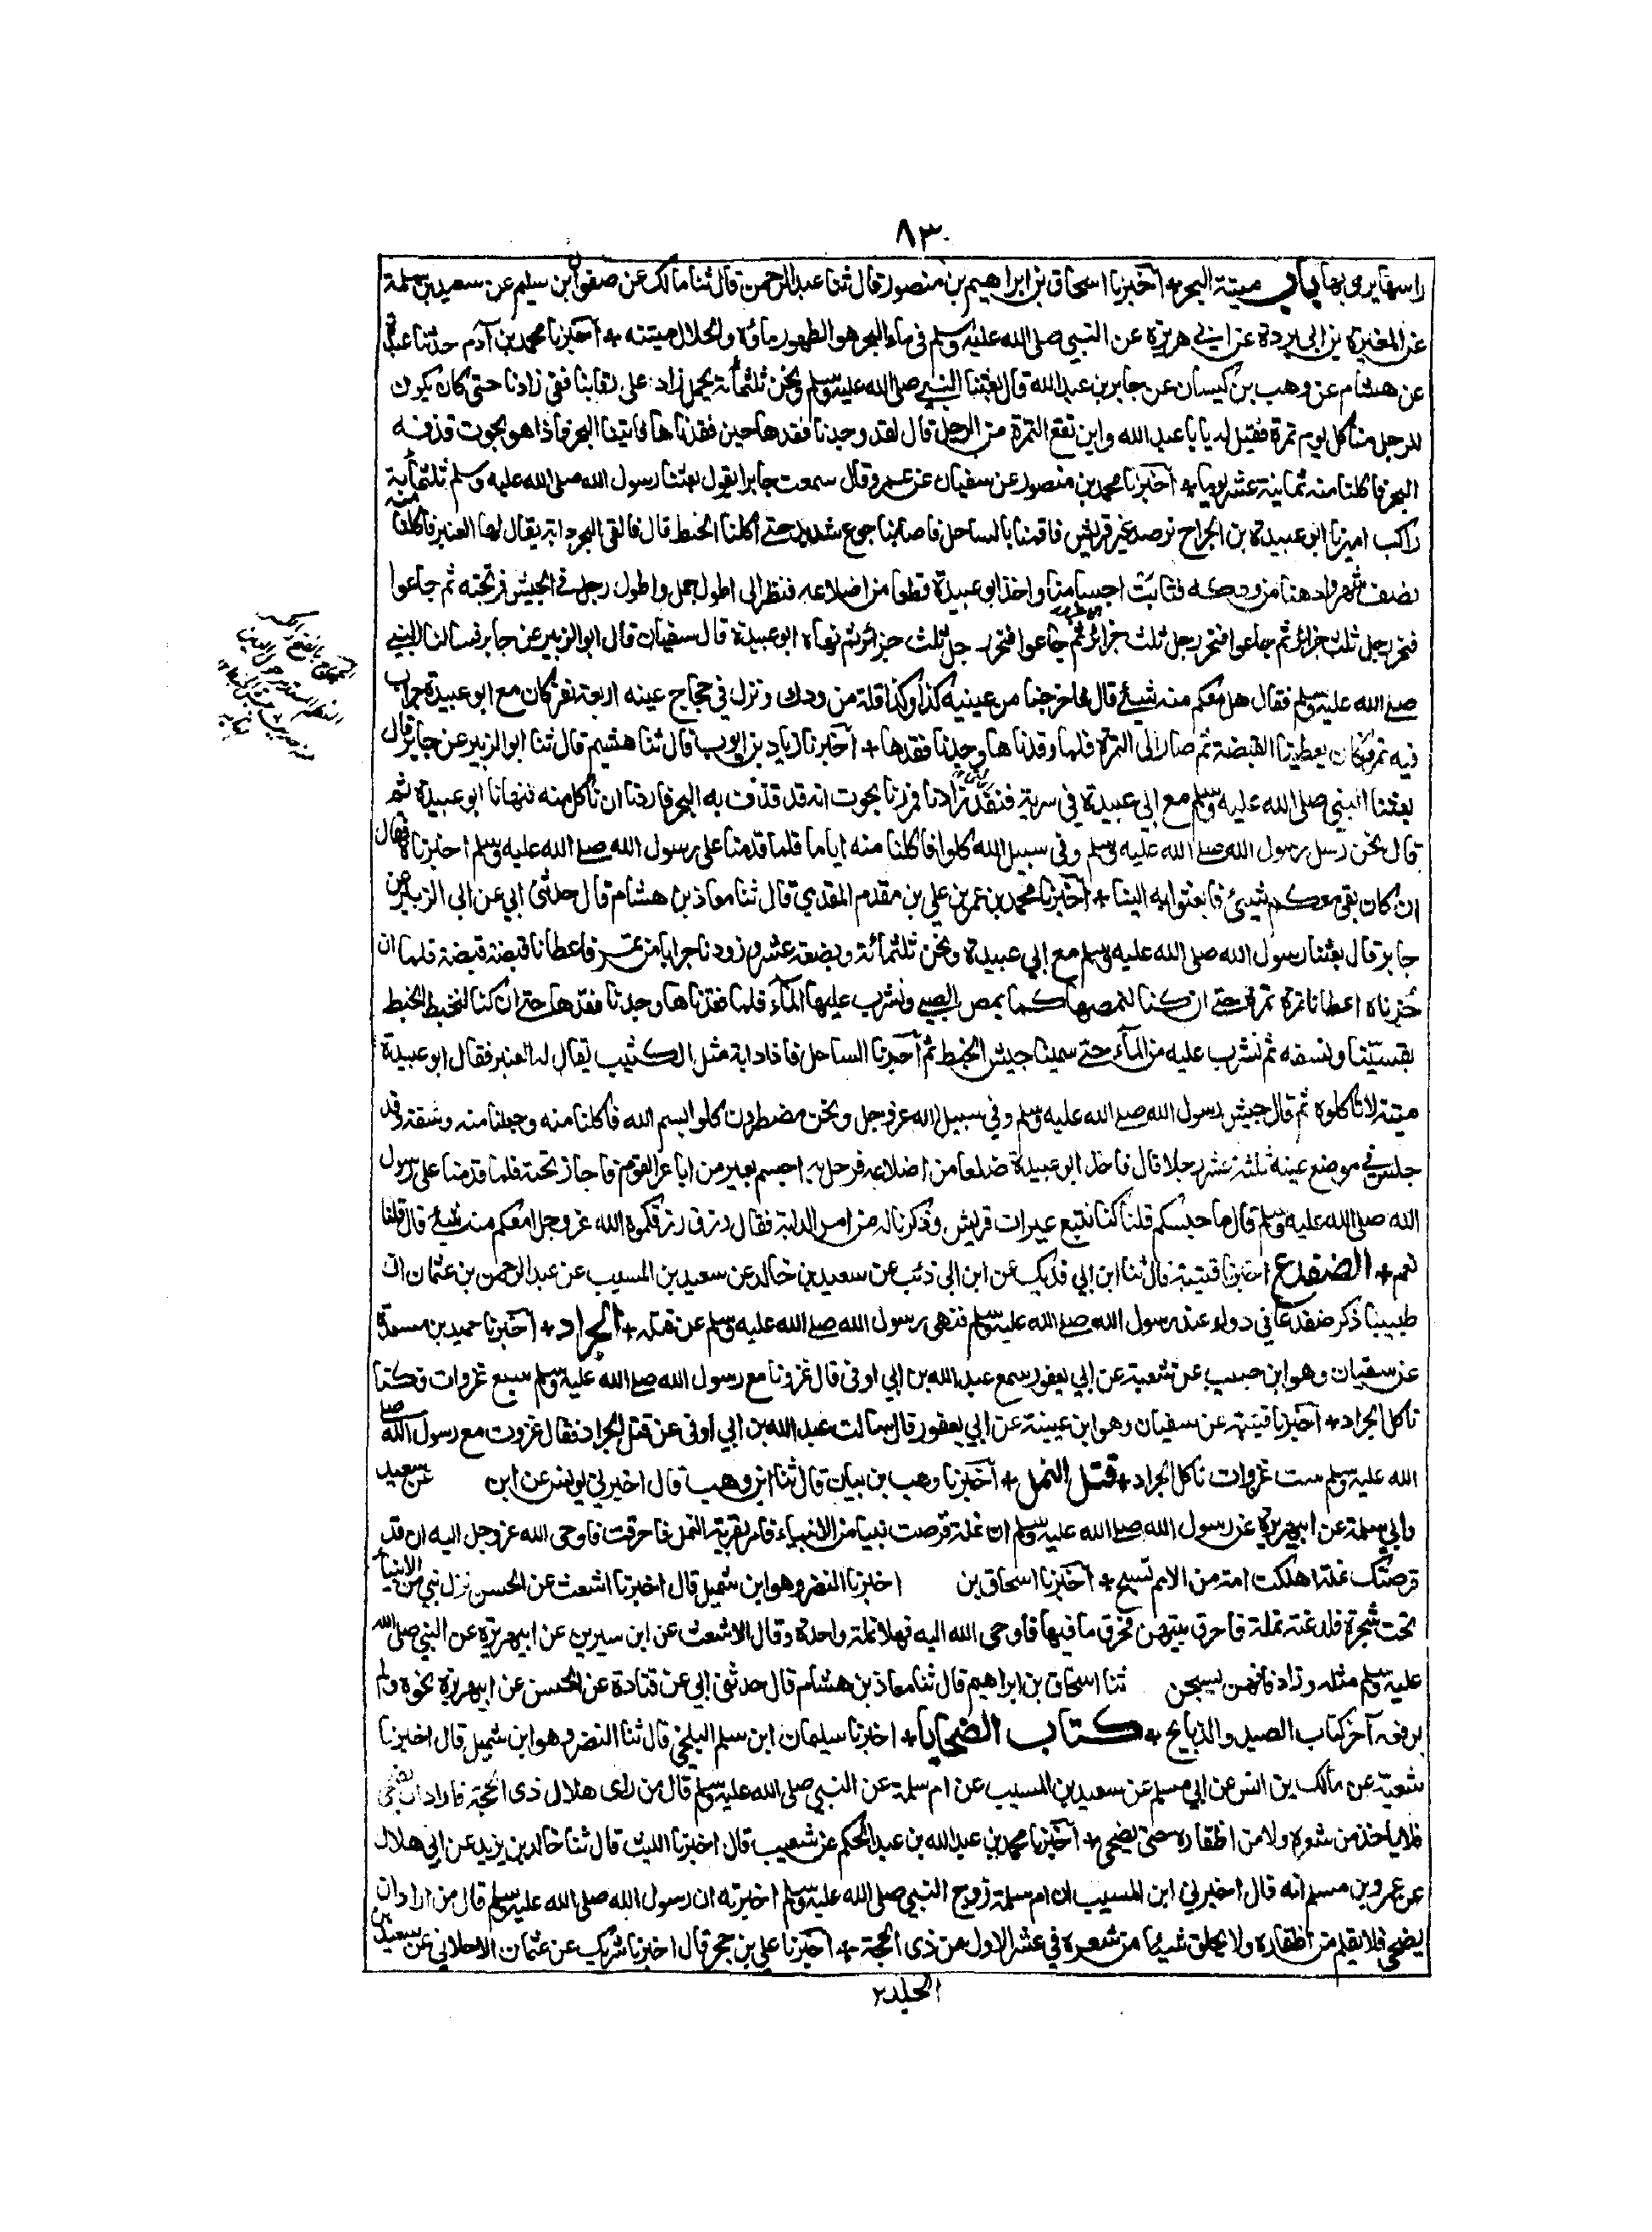 ٨٣
راسها يرمى بها باب ميتة البحر + اخبرنا اسحاق بن ابراهيم بن منصور قال ثنا عبد الرحمن قال ثنا مالك عن صفوان بن سليم عن سعيد بن سلمة
عن المغيرة بن ابي بردة عن ابي هريرة عن النبي صلى الله عليه وسلم في ماء البحر هو الطهور ماؤه والحلال ميتته + اخبرنا محمد بن آدم حدثنا عبدة
عن هشام عن وهب بن كيسان عن جابر بن عبد الله قال بعثنا النبي صلى الله عليه وسلم ونحن ثلثمائة نحمل زادنا على رقابنا ففنى زادنا حتى كان يكون
للرجل منا كل يوم تمرة فقيل له يا با عبد الله واين تقع التمرة من الرجل قال لقد وجدنا فقدها حين فقدناها فاتينا البحر فاذا هو بحوت قذفه
البحر فاكلنا منه ثمانية عشر يوما + اخبرنا محمد بن منصور عن سفيان عن عمرو قال سمعت جابرا يقول بعثنا رسول الله صلى الله عليه وسلم ثلثمأية
راكب اميرنا ابو عبيدة بن الجراح نرصد عير قريش فاقمنا بالساحل فاصابنا جوع شديد حتى اكلنا الخبط قال فالقى البحر دابة يقال لها العنبر فاكلنا منه
نصف شهر وادهنا من ودكه فثابت اجسامنا واخذ ابو عبيدة ضلعا من اضلاعه فنظر الى اطول جمل واطول رجل في الجيش فمر تحته ثم جاعوا
فنحر رجل ثلث جزائر ثم جاعوا فنحر رجل ثلث جزائر ثم جاعوا فنحر رجل ثلث جزائر ثم نهاه ابو عبيدة قال سفيان قال ابو الزبير عن جابر فسالنا النبي
صلى الله عليه وسلم فقال هل معكم منه شيئ قال فاخرجنا من عينيه كذا وكذا قلة من ودك ونزل في حجاج عينه اربعة نفر كان مع ابو عبيدة جراب
فيه تمر فكان يعطينا القبضة ثم صار الى التمرة فلما فقدناها وجدنا فقدها + اخبرنا زياد بن ايوب قال ثنا هشيم قال ثنا ابو الزبير عن جابر قال
بعثنا النبي صلى الله عليه وسلم مع ابي عبيدة في سرية فنفد زادنا فمررنا بحوت انه قد قذف به البحر فاردنا ان ناكل منه فنهانا ابو عبيدة ثم
قال نحن رسل رسول الله صلى الله عليه وسلم وفي سبيل الله كلوا فاكلنا منه اياما فلما قدمنا على رسول الله صلى الله عليه وسلم اخبرناه فقال
ان كان بقى معكم شيئ فابعثوا به الينا + اخبرنا محمد بن عمر بن علي بن مقدم المقدمي قال ثنا معاذ بن هشام قال حدثنى ابي عن ابى الزبير عن
جابر قال بعثنا رسول الله صلى الله عليه وسلم مع ابي عبيدة ونحن ثلثمائة وبضعة عشر وزودنا جرابا من تمر فاعطانا قبضة قبضة فلما ان
جزناه اعطانا تمرة تمرة حتى ان كنا لنمصها كما يمص الصبي ونشرب عليها المآء فلما فقدناها وجدنا فقدها حتى ان كنا لنخبط الخبط
بقسيّنا ونسفه ثم نشرب عليه من المآء حتى سمينا جيش الخبط ثم اخذنا الساحل فاذا دابة مثل الكثيب يقال له العنبر فقال ابو عبيدة
ميتة لا تاكلوه ثم قال جيش رسول الله صلى الله عليه وسلم وفي سبيل الله عز وجل ونحن مضطرون كلوا بسم الله فاكلنا منه وجعلنا منه وشيقة وقد
جلس في موضع عينه ثلثة عشر رجلا قال فاخذ ابو عبيدة ضلعا من اضلاعه فرحل به اجسم بعير من اباعر القوم فاجاز تحته فلما قدمنا على رسول
الله صلى الله عليه وسلم قال ما حبسكم قلنا كنا نتبع عيرات قريش وذكرنا له من امر الدابة فقال ذلك رزق رزقكموه الله عز وجل امعكم منه شيئ قال قلنا
نعم + الضفدع اخبرنا قتيبة قال ثنا ابن ابي فديك عن ابن ابى ذئب عن سعيد بن خالد عن سعيد بن المسيب عن عبد الرحمن بن عثمان ان
طبيبا ذكر ضفدعا في دواء عند رسول الله صلى الله عليه وسلم فنهى رسول الله صلى الله عليه وسلم عن قتله + الجراد + اخبرنا حميد بن مسعدة
عن سفيان وهو ابن حبيب عن شعبة عن ابي يعفور سمع عبد الله بن ابي اوفى قال غزونا مع رسول الله صلى الله عليه وسلم سبع غزوات فكنا
ناكل الجراد + اخبرنا قتيبة عن سفيان وهو ابن عيينة عن ابي يعفور قال سالت عبد الله بن ابي اوفى عن قتل الجراد فقال غزوت مع رسول الله صلى
الله عليه وسلم ست غزوات ناكل الجراد + قتل النمل + اخبرنا وهب بن بيان قال ثنا ابن وهب قال اخبرني يونس عن ابن عن سعيد
وابي سلمة عن ابي هريرة عن رسول الله صلى الله عليه وسلم ان نملة قرصت نبيا من الانبياء فامر بقرية النمل فاحرقت فاوحى الله عز وجل اليه ان قد
قرصتك نملة اهلكت امة من الامم تسبح + اخبرنا اسحاق بن اخبرنا النضر وهو ابن شميل قال اخبرنا اشعث عن الحسن نزل نبي من الانبياء
تحت شجرة فلدغته نملة فامر ببيتهن فحرق ما فيها فاوحى الله اليه فهلا نملة واحدة وقال الاشعث عن ابن سيرين عن ابي هريرة عن النبي صلى الله
عليه وسلم مثله وزاد فانهن يسبحن ثنا اسحاق بن ابراهيم قال ثنا معاذ بن هشام قال حدثنى ابي عن قتادة عن الحسن عن ابي هريرة نحوه ولم
يرفعه آخر كتاب الصيد والذبايح + كتاب الضحايا + اخبرنا سليمان ابن سلم البلخي قال ثنا النضر وهو ابن شميل قال اخبرنا
شعبة عن مالك بن انس عن ابي مسلم عن سعيد بن المسيب عن ام سلمة عن النبي صلى الله عليه وسلم قال من راى هلال ذى الحجة فاراد ان يضحى
فلا ياخذ من شعره ولا من اظفاره حتى يضحى + اخبرنا محمد بن عبد الله بن عبد الحكم عن شعيب قال اخبرنا الليث قال ثنا خالد بن يزيد عن ابي هلال
عن عمرو بن مسلم انه قال اخبرني ابن المسيب ان ام سلمة زوج النبي صلى الله عليه وسلم اخبرته ان رسول الله صلى الله عليه وسلم قال من اراد ان
يضحى فلا يقلم من اظفاره ولا يحلق شيئا من شعره في عشر الاول من ذى الحجة + اخبرنا علي بن حجر قال اخبرنا شريك عن عثمان الاحلافي عن سعيد بن
الجلد ٢